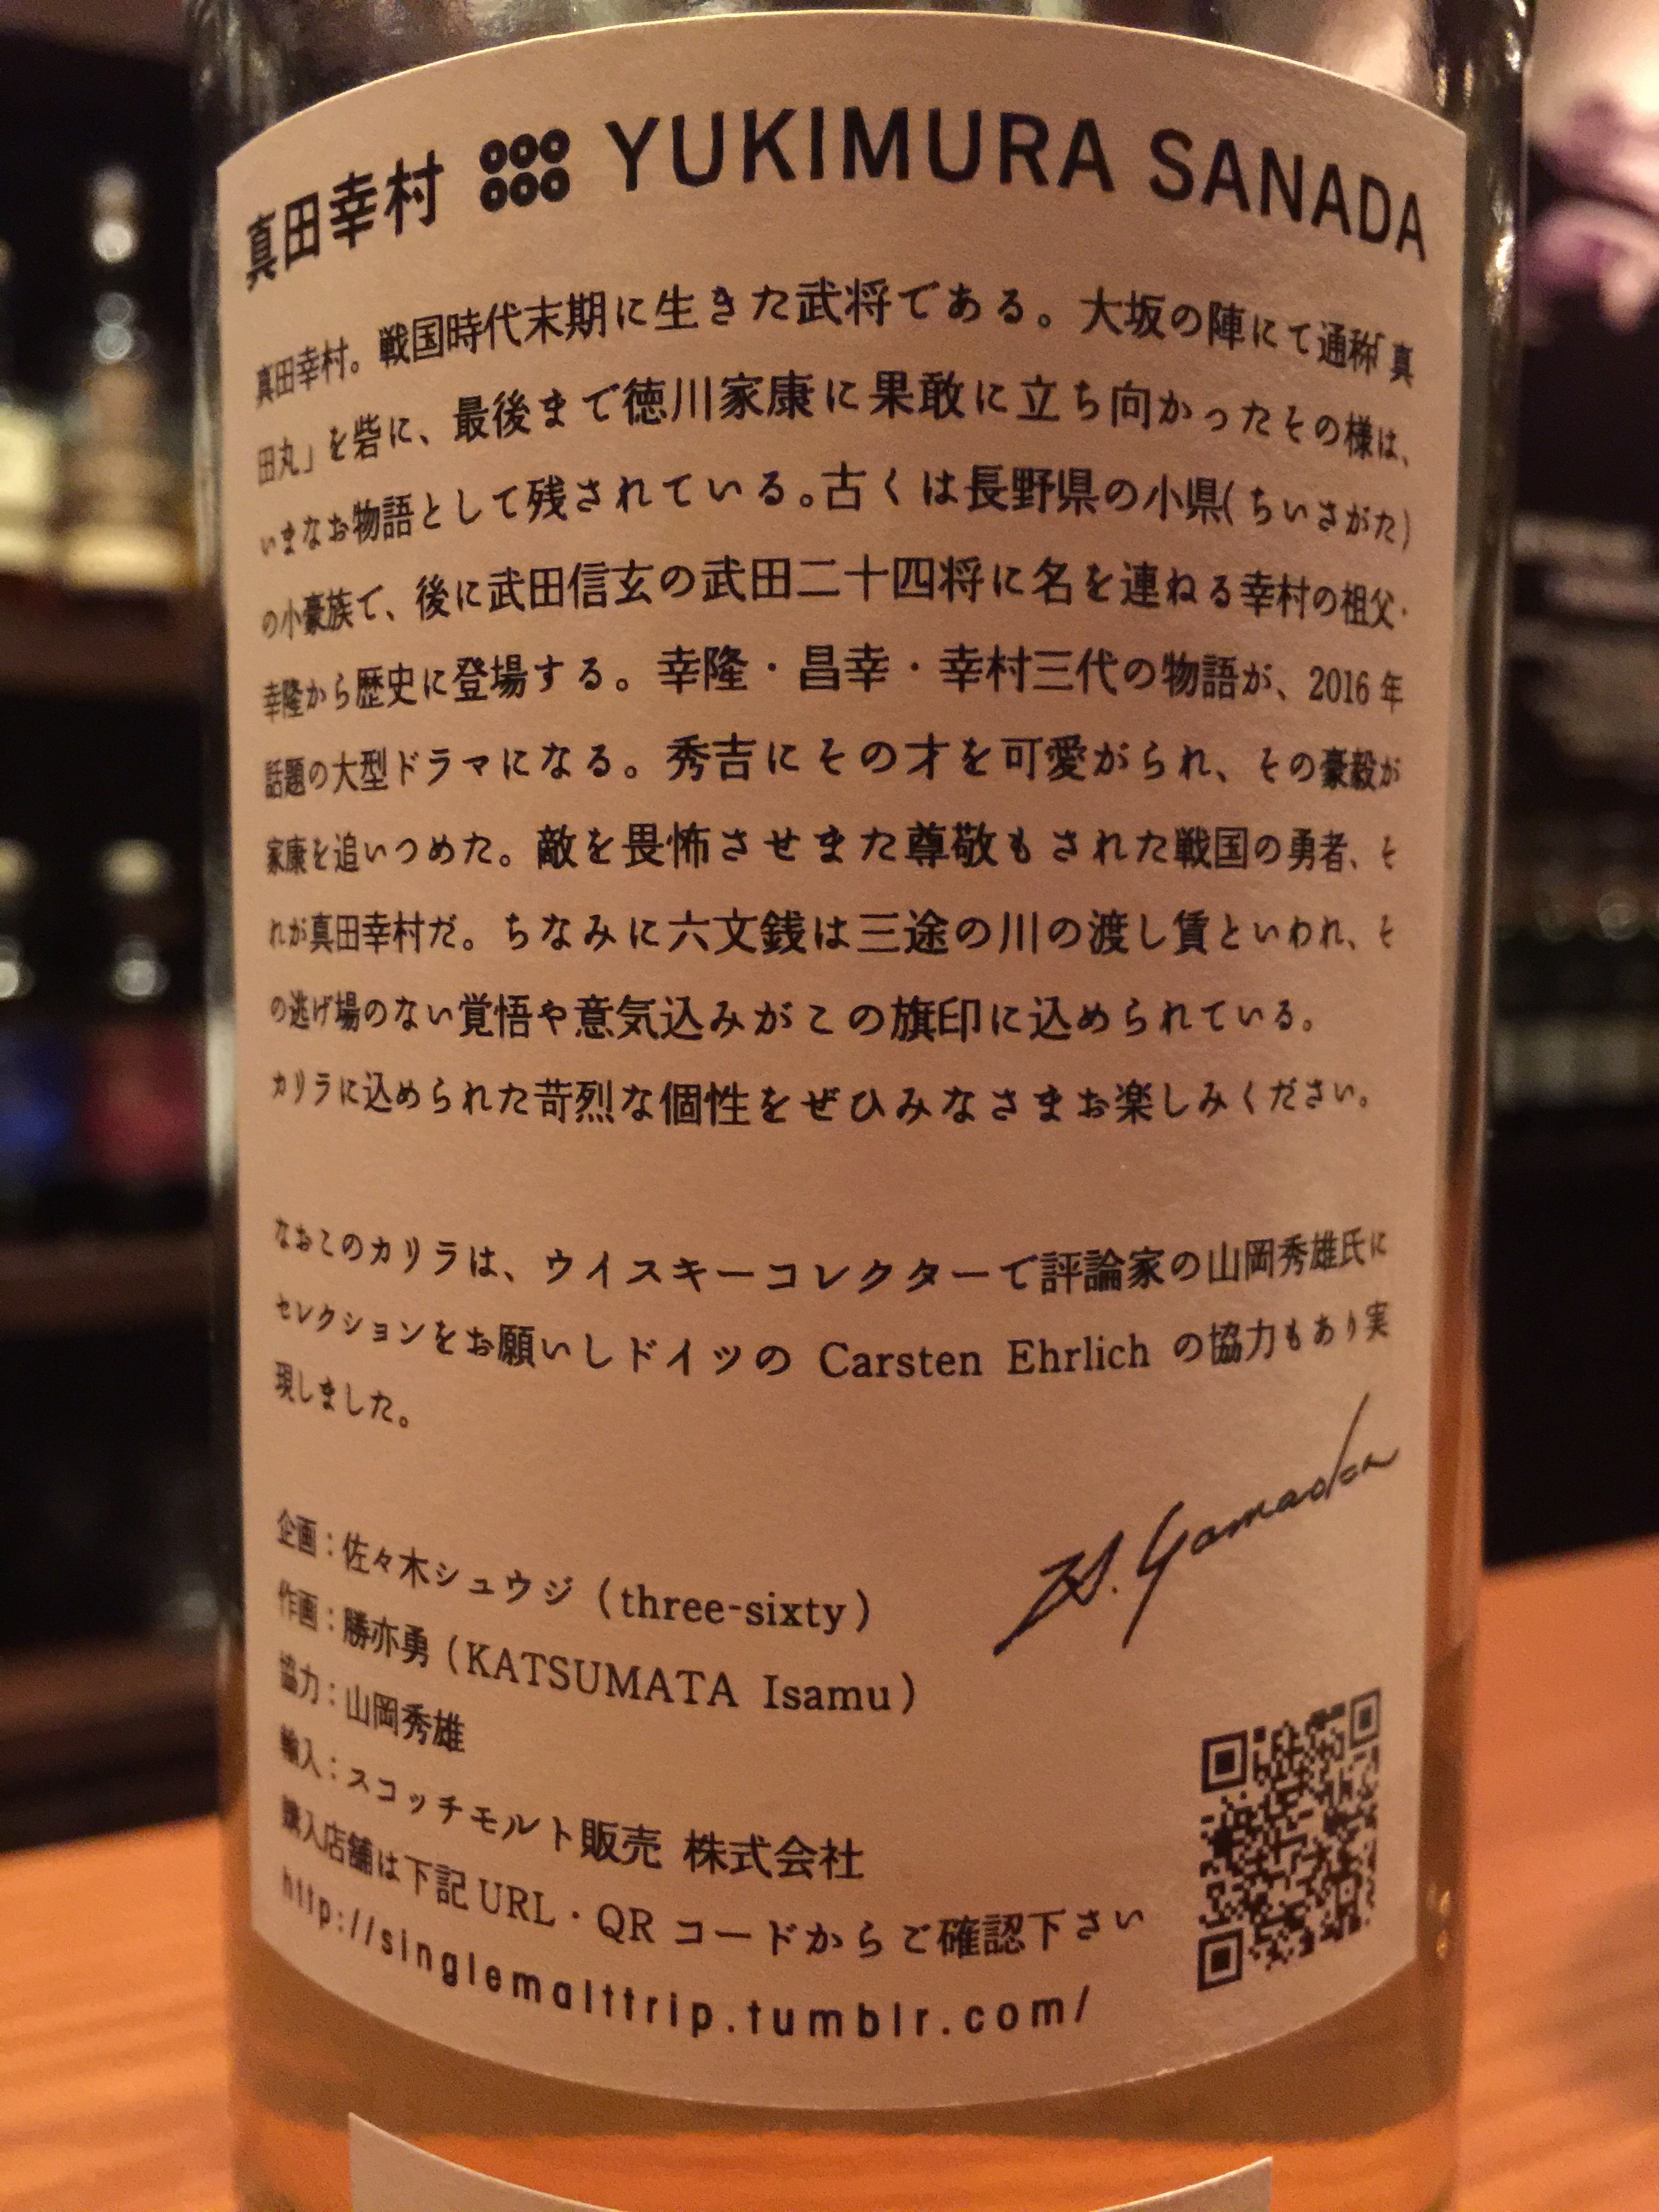 真田幸村 YUKIMURA SANADA
真田幸村。戦国時代末期に生きた武将である。大坂の陣にて通称「真
田丸」を砦に、最後まで徳川家康に果敢に立ち向かったその様は、
いまなお物語として残されている。古くは長野県の小県(ちいさがた)
の小豪族で、後に武田信玄の武田二十四将に名を連ねる幸村の祖父・
幸隆から歴史に登場する。幸隆・昌幸・幸村三代の物語が、2016年
話題の大型ドラマになる。秀吉にその才を可愛がられ、その豪毅が
家康を追いつめた。敵を畏怖させまた尊敬もされた戦国の勇者、そ
れが真田幸村だ。ちなみに六文銭は三途の川の渡し賃といわれ、そ
の逃げ場のない覚悟や意気込みがこの旗印に込められている。
カリラに込められた苛烈な個性をぜひみなさまお楽しみください。
なおこのカリラは、ウイスキーコレクターで評論家の山岡秀雄氏に
セレクションをお願いしドイツの Carsten Ehrlich の協力もあり実
現しました。
H. Yamaoka
企画：佐々木シュウジ（three-sixty）
作画：勝亦勇（KATSUMATA Isamu）
協力：山岡秀雄
輸入：スコッチモルト販売 株式会社
購入店舗は下記URL・QRコードからご確認下さい
http://singlemalttrip.tumblr.com/